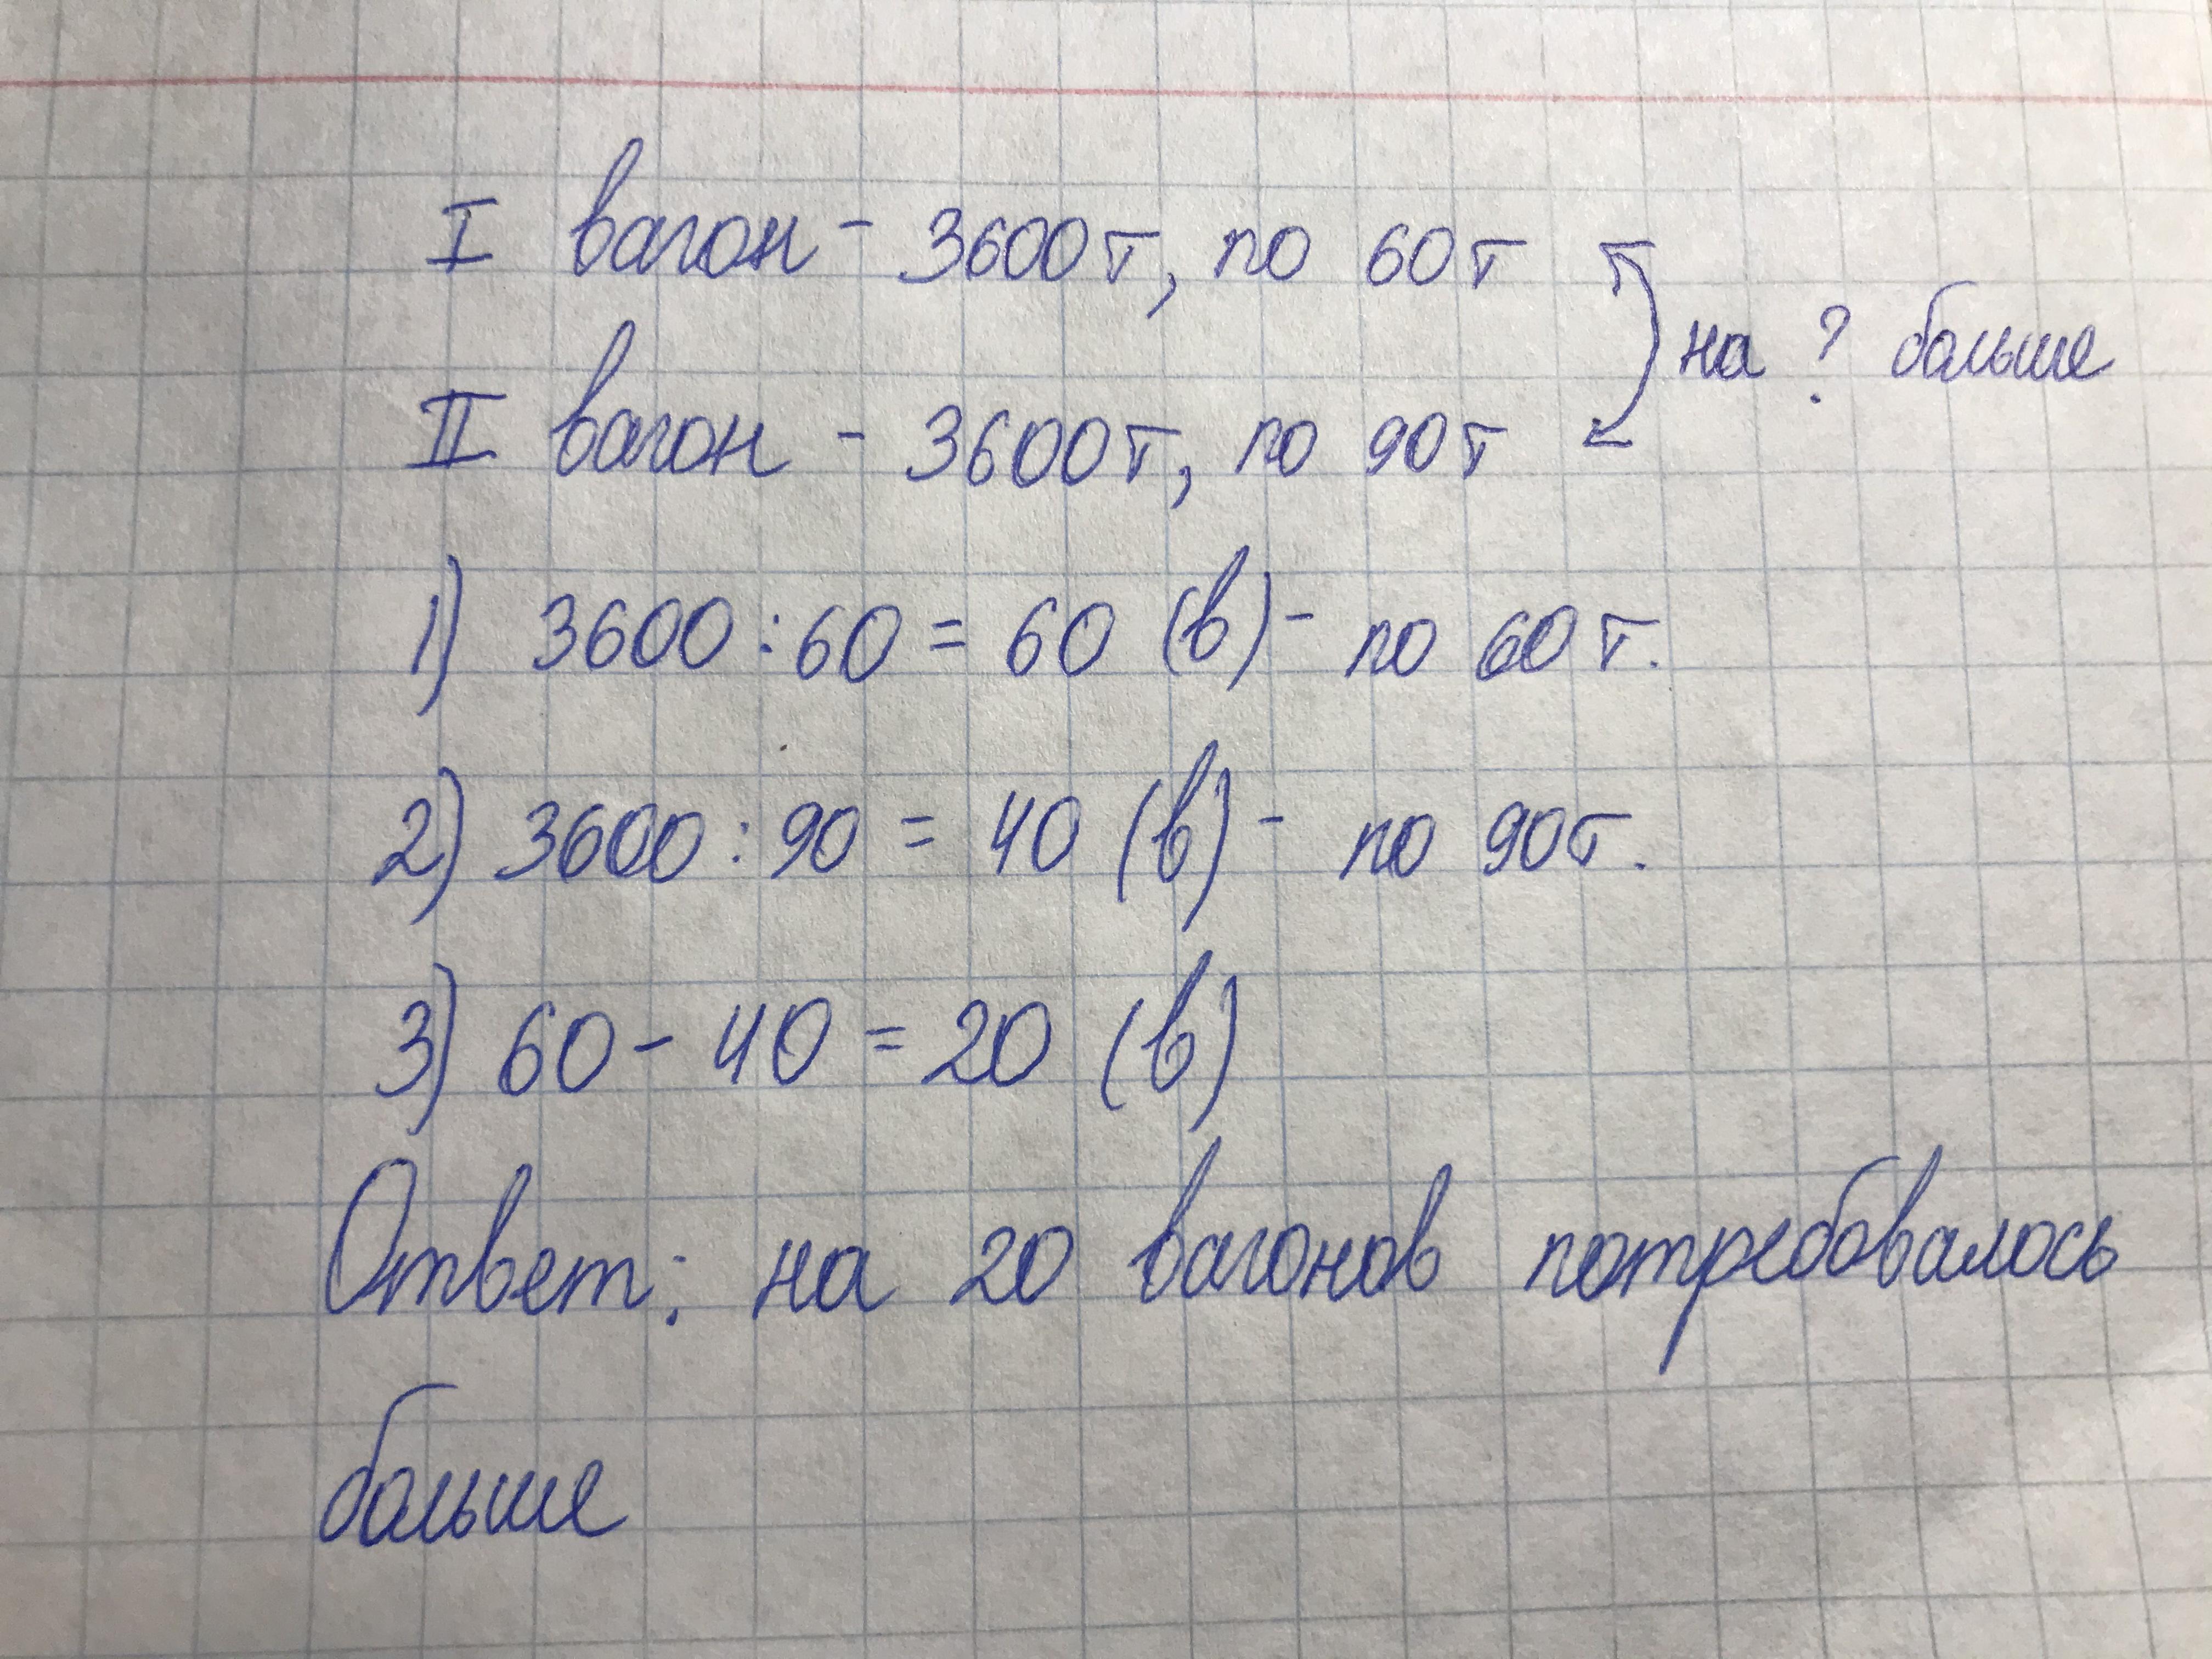 I вагон - 3600т, по 60т
на ? больше
II вагон - 3600т, по 90т
1) 3600 : 60 = 60 (в) - по 60 т.
2) 3600 : 90 = 40 (в) - по 90т.
3) 60 - 40 = 20 (в)
Ответ: на 20 вагонов потребовалось
больше